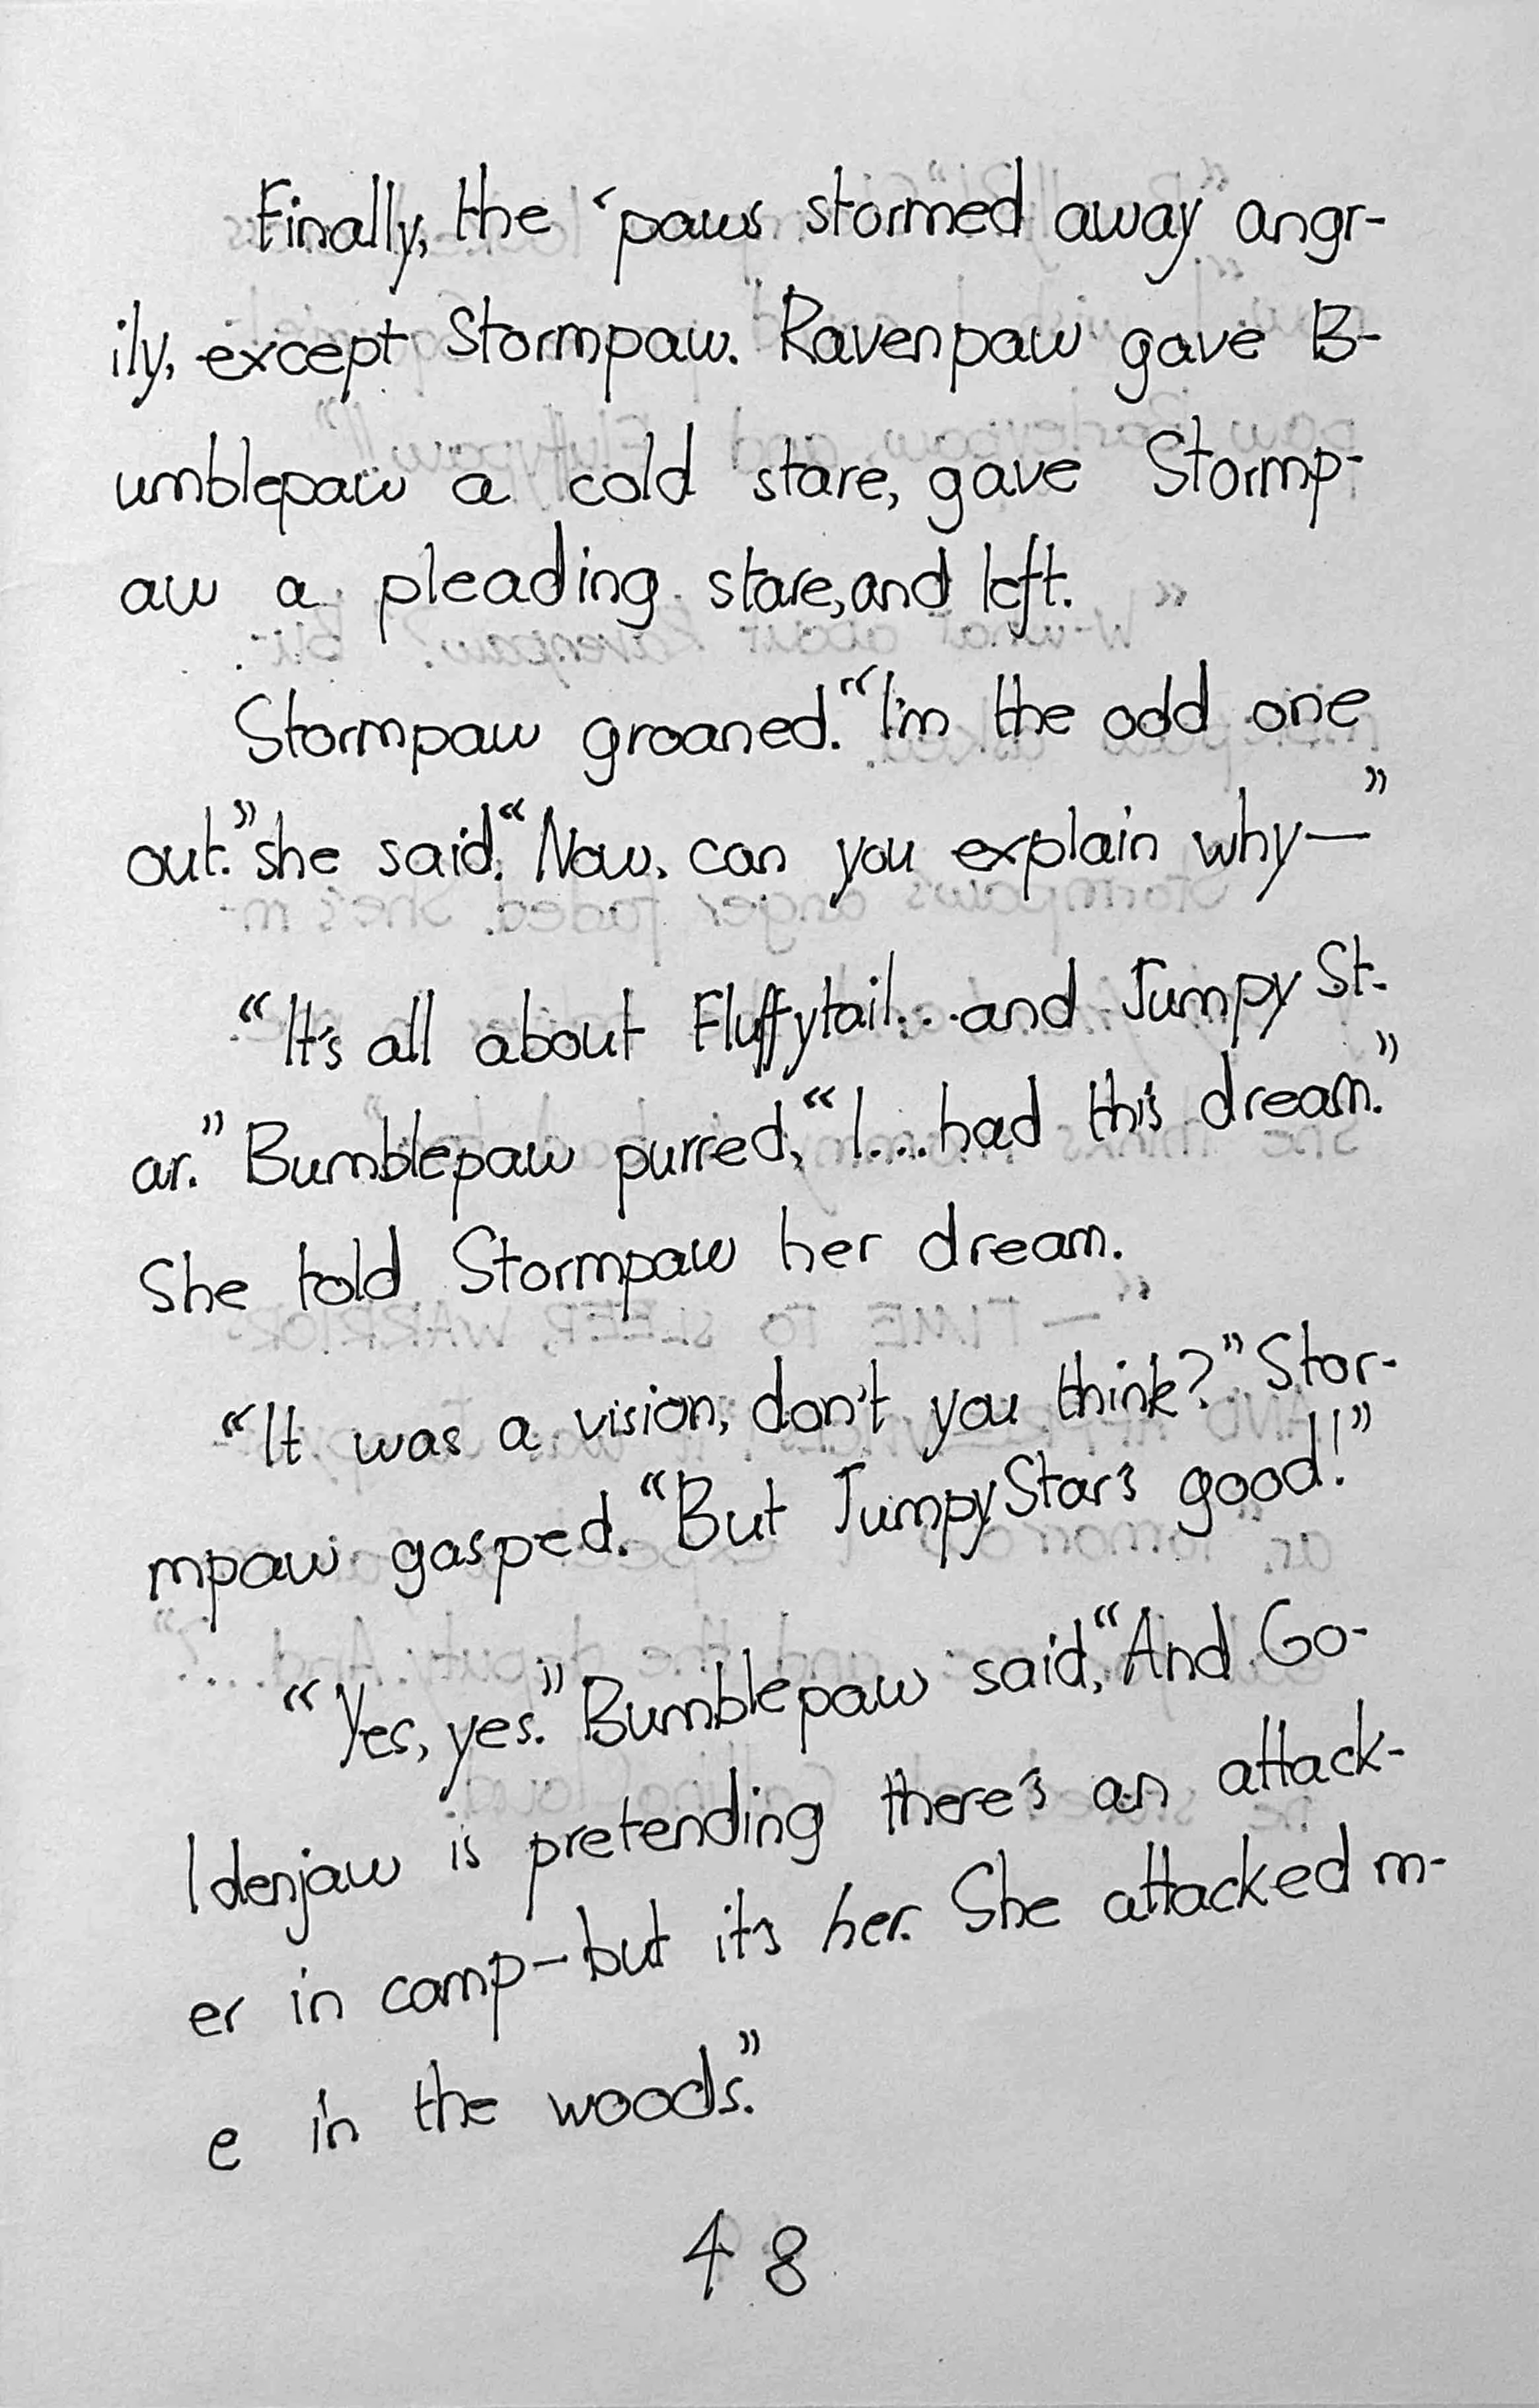 Finally, the ‘paws stormed away angr-
ily, except Stormpaw. Ravenpaw gave B-
umblepaw a cold stare, gave Stormp-
aw a pleading stare, and left.
Stormpaw groaned. “I'm the odd one
out.” she said. “Now, can you explain why—”
“It's all about Fluffytail...and Jumpy St-
ar.” Bumblepaw purred, “I....had this dream.”
She told Stormpaw her dream.
“It was a vision, don't you think?” Stor-
mpaw gasped. “But JumpyStar's good!”
“Yes, yes.” Bumblepaw said, “And Go-
ldenjaw is pretending there's an attack-
er in camp—but it's her. She attacked m-
e in the woods.”
48